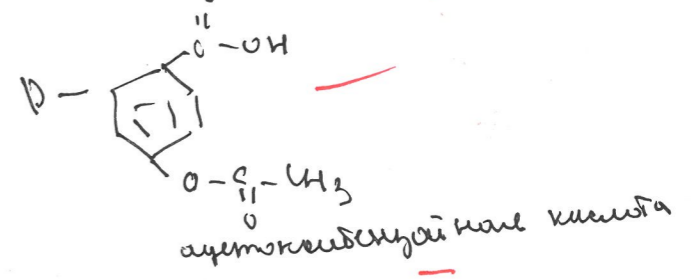 O
C - OH
D -
O - C - CH3
O
ацетоксибензойная кислота